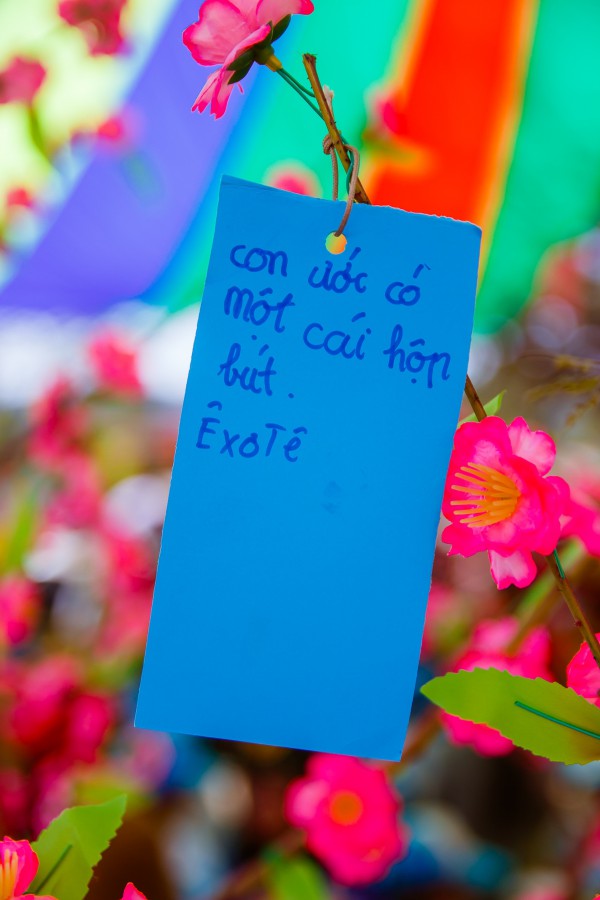 con ước có
một cái hộp
bút.
ÊxoTê